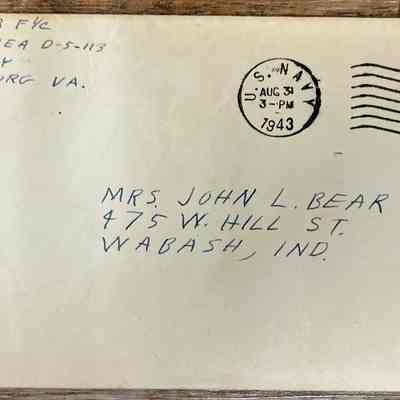 F1/C
EA D-5-113
Y
RG VA.
U.S. NAVY
AUG 31
3-PM
1943
MRS. JOHN L. BEAR
475 W. HILL ST.
WABASH, IND.